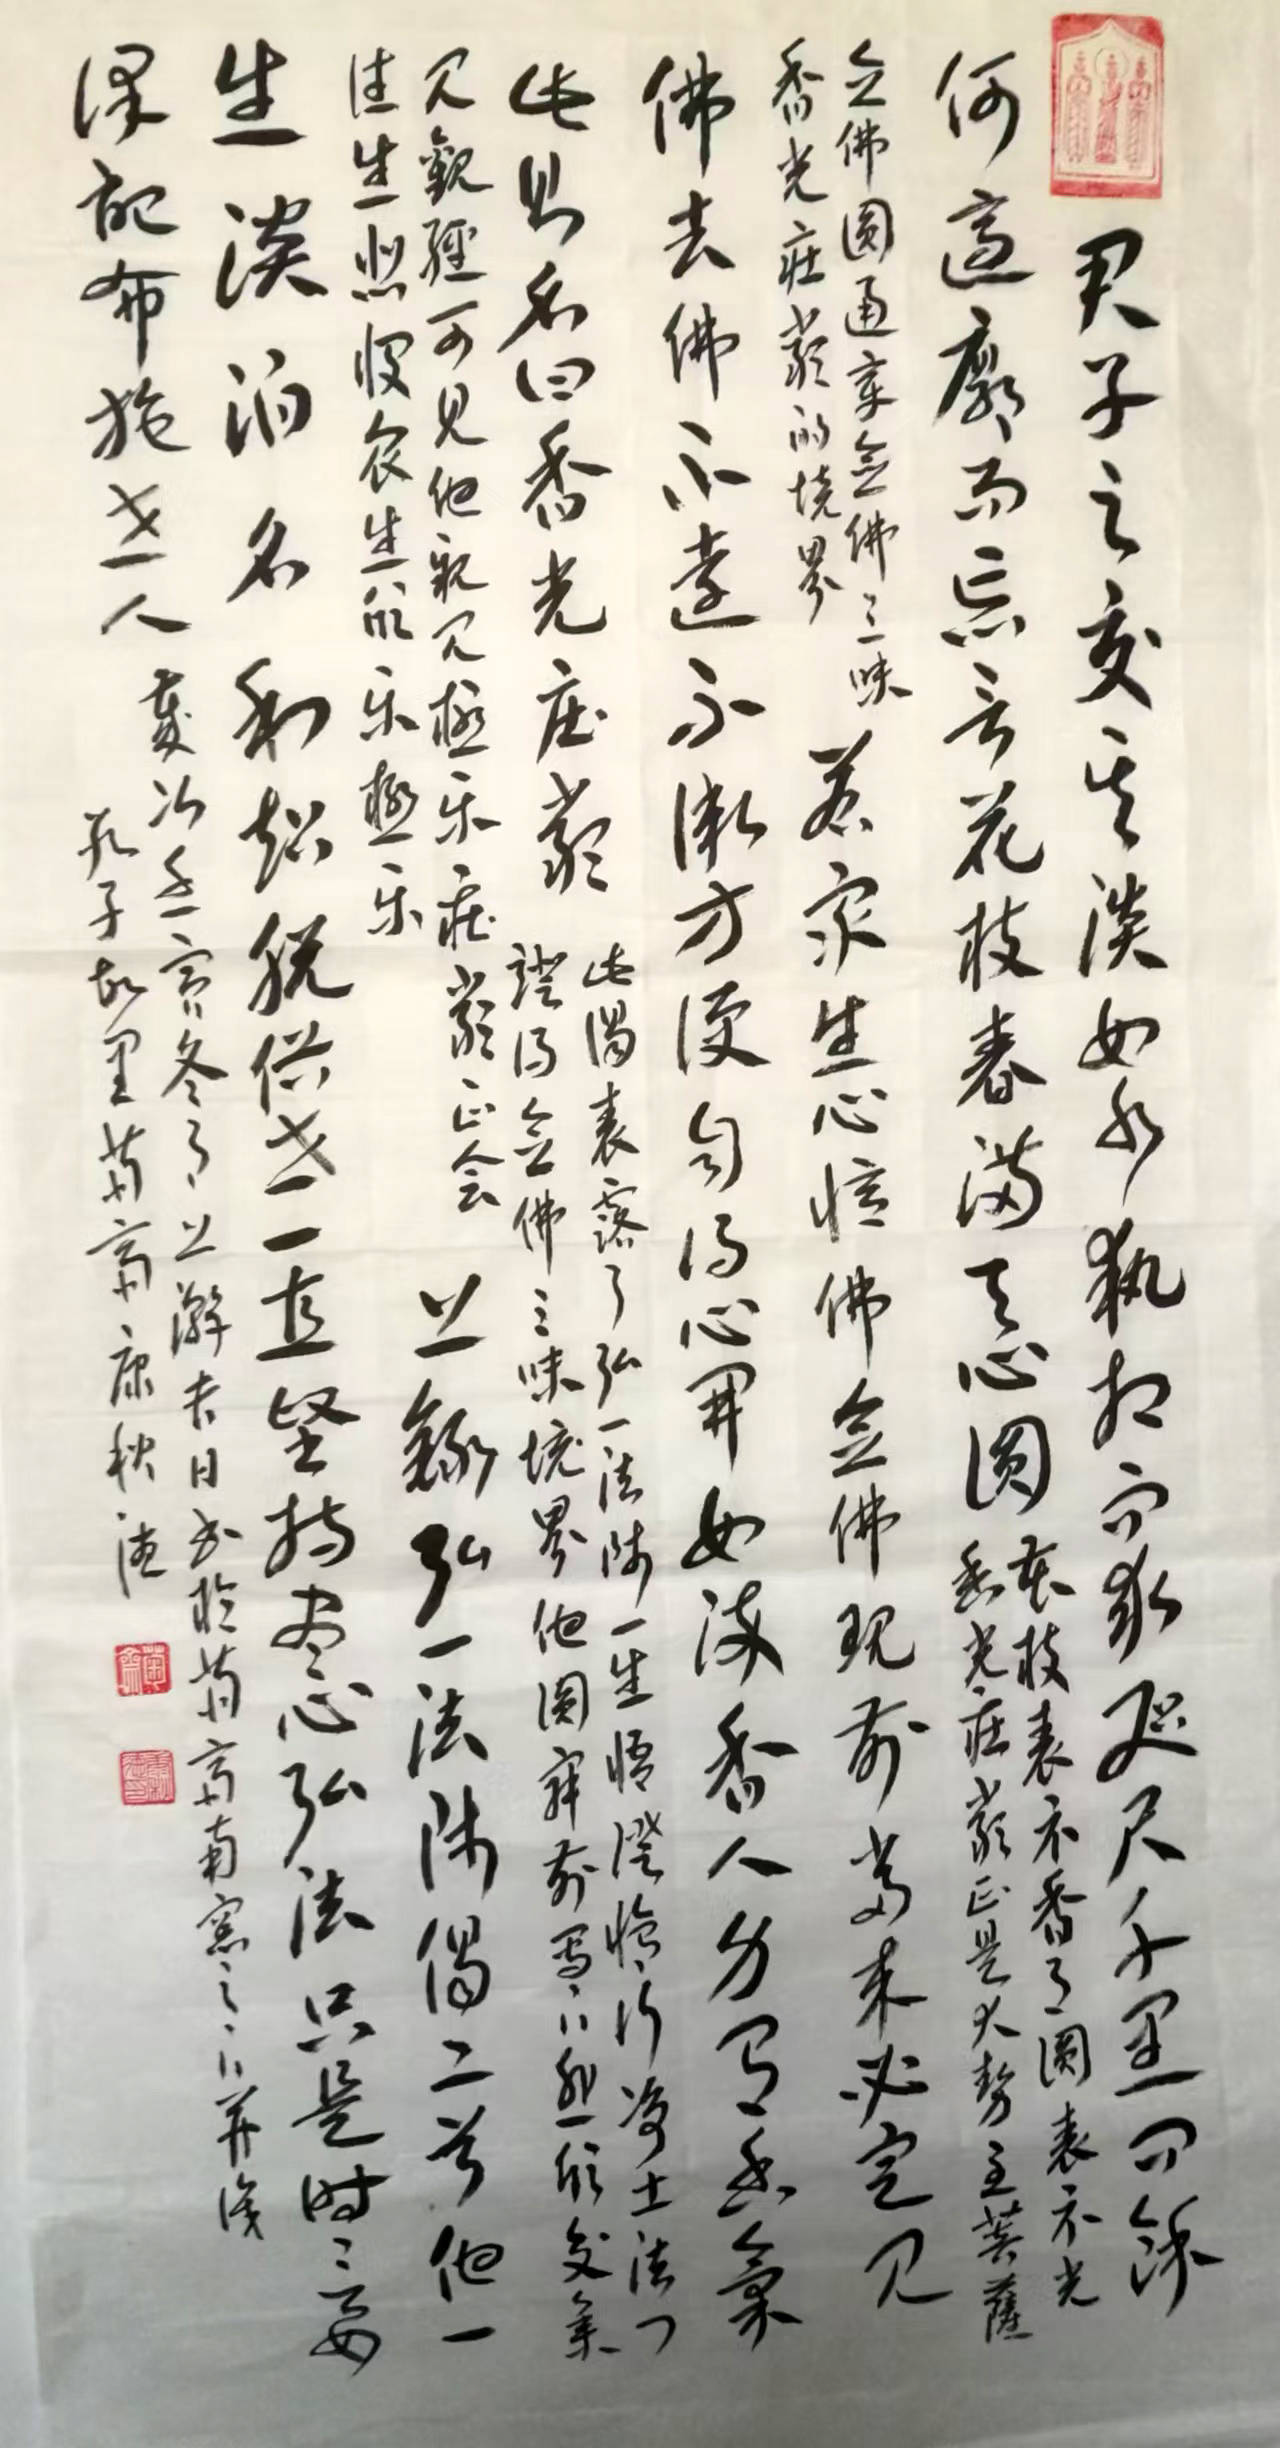 君子之交其淡如水执相而求咫尺千里问余
何适廓而忘言花枝春满天心圆
花枝表示香了圆表示光
香光庄严正是大势至菩萨
念佛圆通章念佛三昧
香光庄严的境界
若众生心忆佛念佛现前当来必定见
佛去佛不远不假方便自得心开如染香人身有香气
此则名曰香光庄严
此偈表露了弘一法师一生悟证修行净土法门
证得念佛三昧境界他圆寂前写下悲欣交集
见观经可见他亲见极乐庄严正会
往生悲愍众生欣乐极乐
上录弘一法师偈二首他一
生淡泊名利超脱供世一直坚持尽心弘法只是时三要
深记布施世人
岁次 寅冬了 上澣吉日书于 斋南窗之下并识
孔子故里 斋康秋